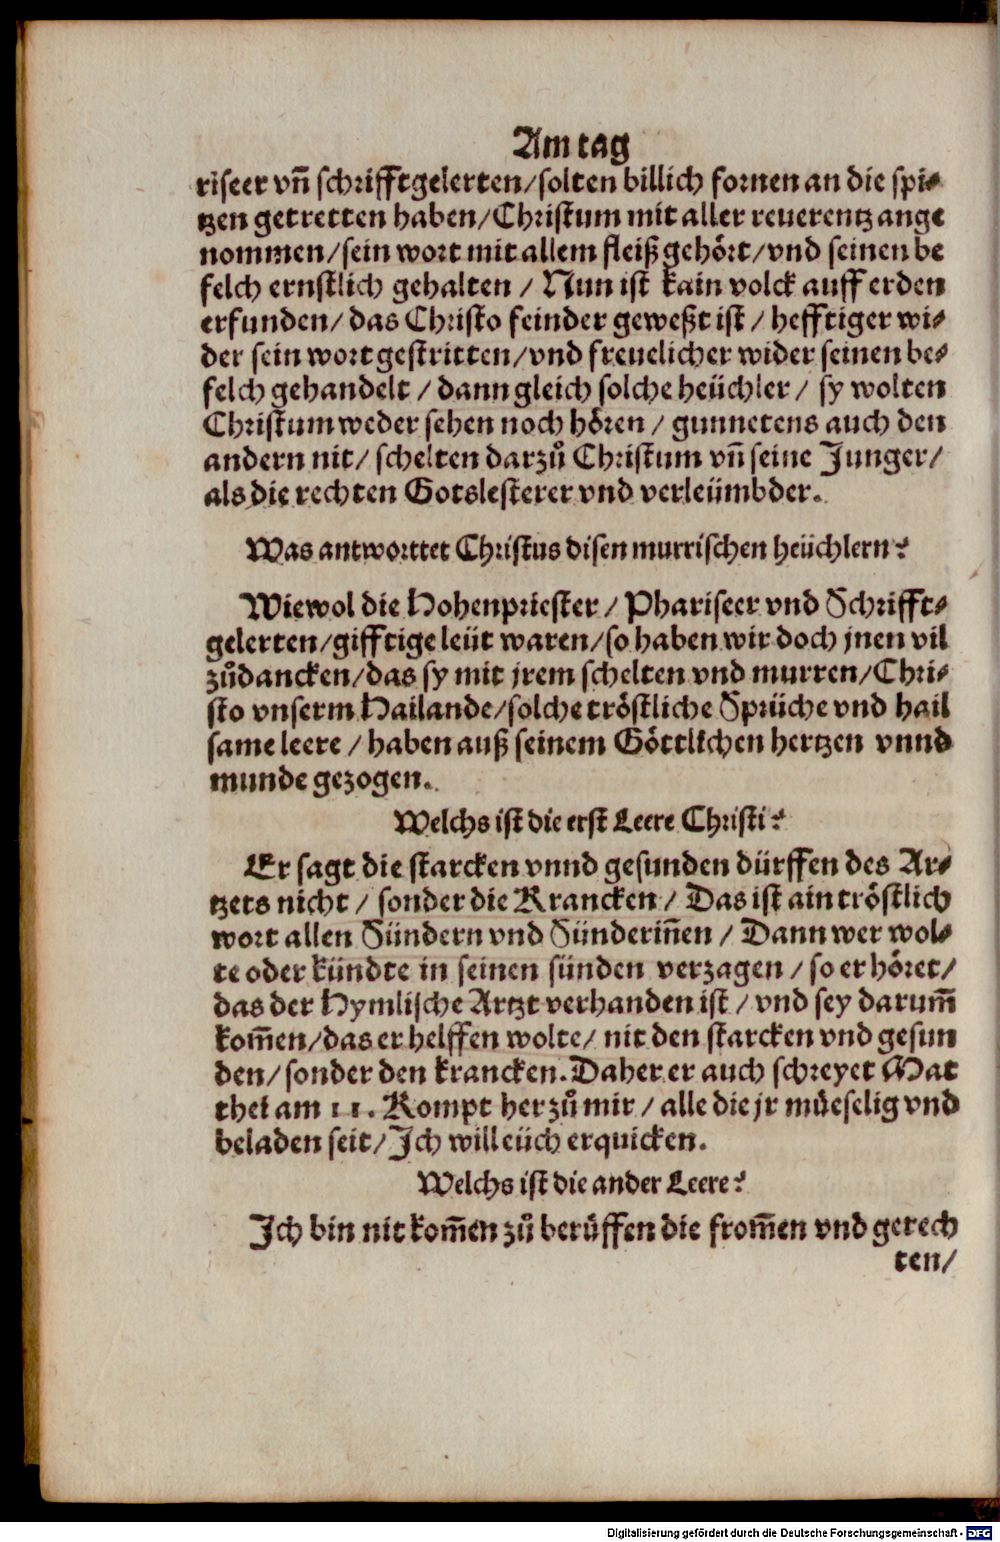 Am tag
riseer vnn̄ schrifftgelerten/solten billich fornen an die spi⸗
tzen getretten haben/Christum mit aller reuerentz ange
nommen/sein wort mit allem fleiß gehört/vnd seinen be
felch ernstlich gehalten / Nun ist kain volck auff erden
erfunden/ das Christo feinder geweßt ist / hefftiger wi⸗
der sein wort gestritten/vnd freuelicher wider seinen be⸗
felch gehandelt / dann gleich solche heüchler / sy wolten
Christum weder sehen noch hören / gunnetens auch den
andern nit/ schelten darzů Christum vn̄ seine Junger/
als die rechten Gotslesterer vnd verleümbder.
Was antworttet Christus disen murrischen heüchlern?
Wiewol die Hohenpriester / Phariseer vnd Schrifft⸗
gelerten/gifftige leüt waren/so haben wir doch jnen vil
zůdancken/das sy mit jrem schelten vnd murren/Chri⸗
sto vnserm Hailande/solche tröstliche Sprüche vnd hail
same leere / haben auß seinem Göttlichen hertzen vnnd
munde gezogen.
Welchs ist die erst Leere Christi?
Er sagt die starcken vnnd gesunden dürffen des Ar⸗
tzets nicht / sonder die Krancken / Das ist ain tröstlich
wort allen Sündern vnd Sünderin̄en / Dann wer wol⸗
te oder kündte in seinen sünden verzagen / so er höret/
das der Hymlische Artzt verhanden ist / vnd sey darum̄
kom̄en/das er helffen wolte/ nit den starcken vnd gesun
den/sonder den krancken. Daher er auch schreyet Mat
thei am 11. Kompt her zů mir / alle die jr müeselig vnd
beladen seit/Ich will eüch erquicken.
Welchs ist die ander Leere?
Ich bin nit kom̄en zů berůffen die from̄en vnd gerech
ten/
Digitalisierung gefördert durch die Deutsche Forschungsgemeinschaft - DFG